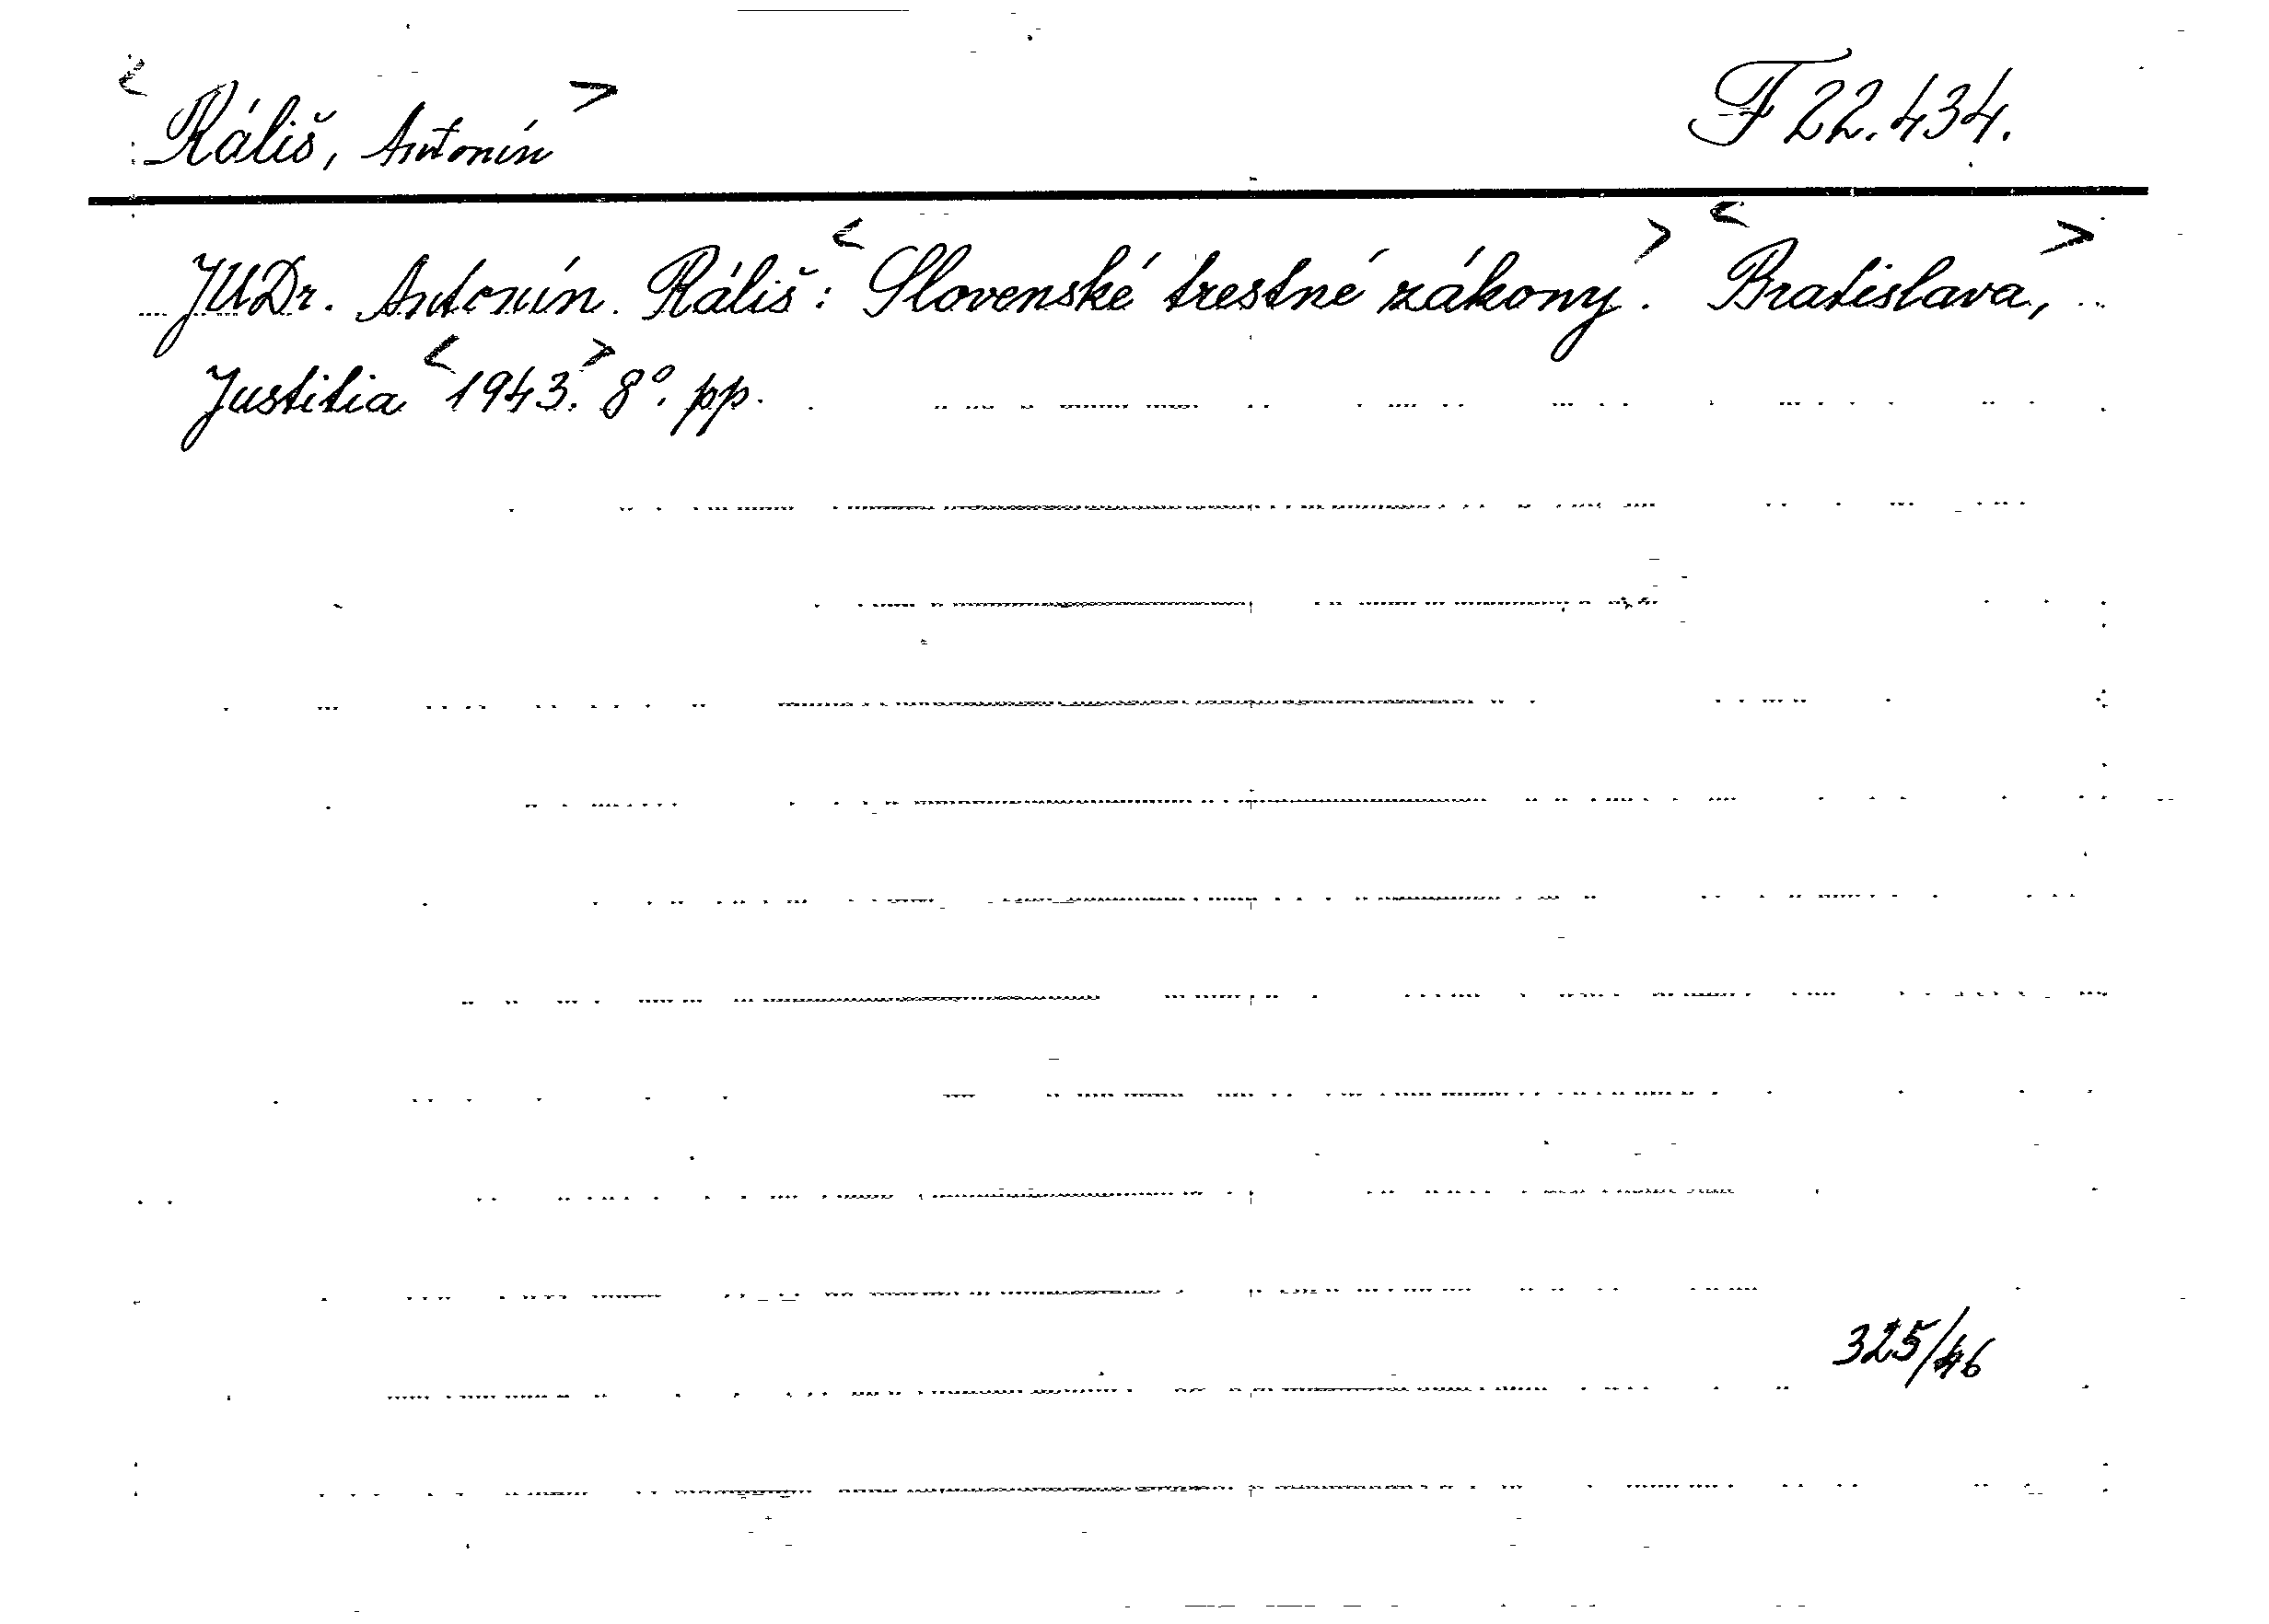 <Ráliš, Antonín>
F 22.434.
JUDr. Antonín Ráliš: <Slovenské trestné zákony>. <Bratislava,>
Justitia <1943.> 8°. pp.
325/46